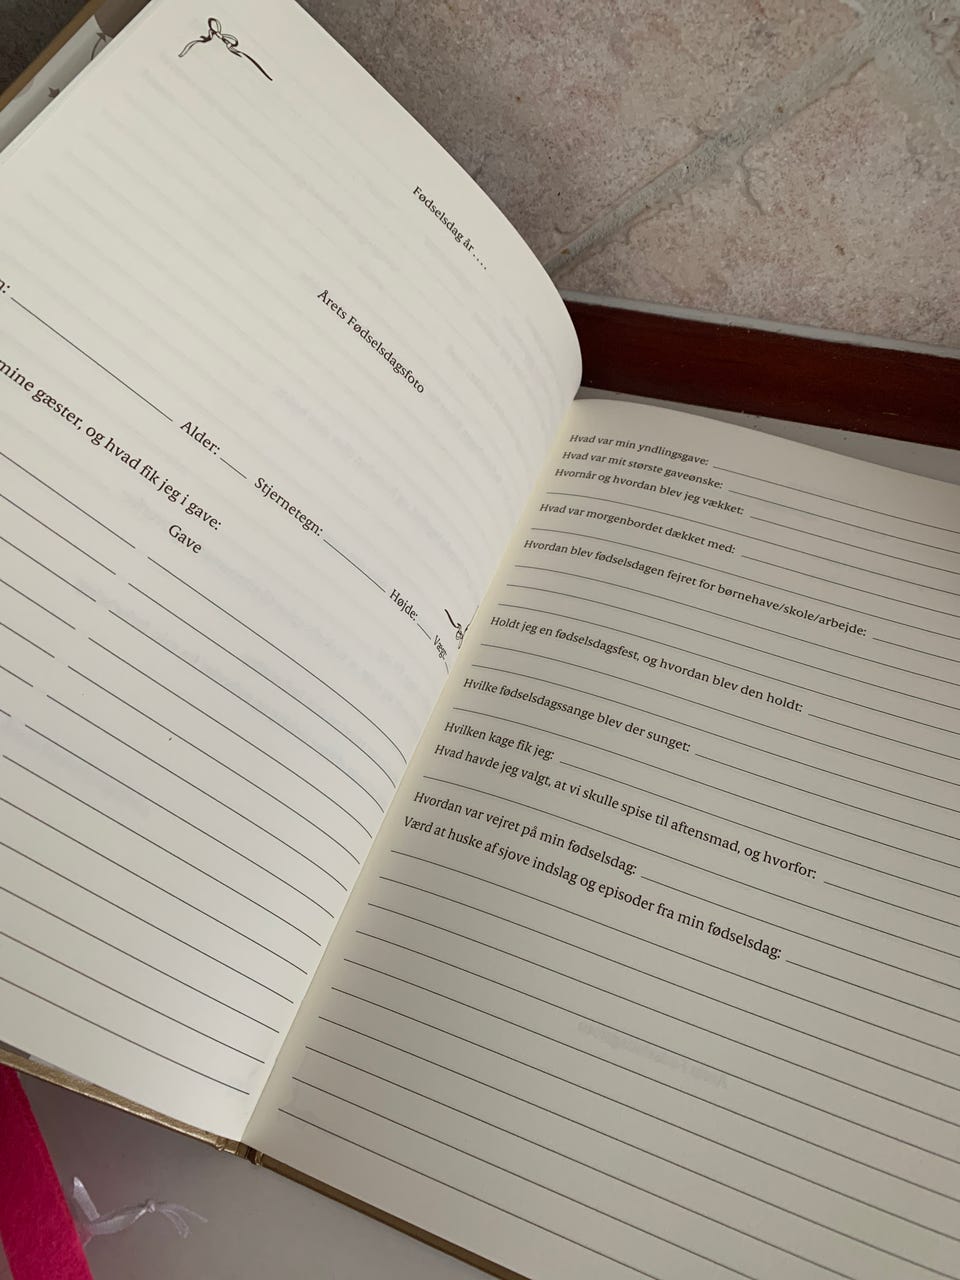 Fødselsdag år ....
Årets Fødselsdagsfoto
Alder: Stjernetegn: Højde: Vægt:
mine gæster, og hvad fik jeg i gave:
Gave
Hvad var min yndlingsgave:
Hvad var mit største gaveønske:
Hvornår og hvordan blev jeg vækket:
Hvad var morgenbordet dækket med:
Hvordan blev fødselsdagen fejret for børnehave/skole/arbejde:
Holdt jeg en fødselsdagsfest, og hvordan blev den holdt:
Hvilke fødselsdagssange blev der sunget:
Hvilken kage fik jeg:
Hvad havde jeg valgt, at vi skulle spise til aftensmad, og hvorfor:
Hvordan var vejret på min fødselsdag:
Værd at huske af sjove indslag og episoder fra min fødselsdag: